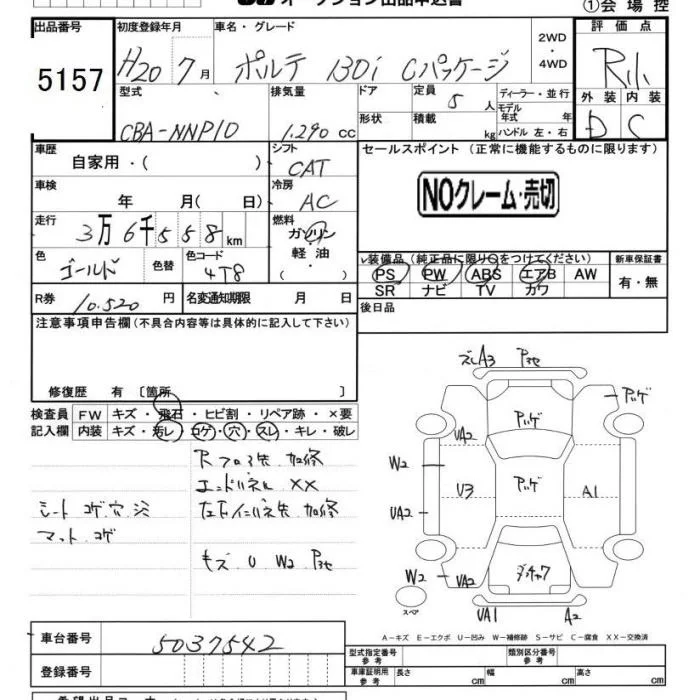 オークション出品申込書
①会場控
出品番号
5157
初度登録年月
H20 7月
車名・グレード
ポルテ 130i Cパッケージ
2WD
・
4WD
評価点
R小
外装 内装
D C
型式
CBA-NNP10
排気量
1,290 cc
ドア
形状
定員
5 人
積載
kg
ディーラー・並行
モデル
年式 年
ハンドル 左・右
車歴
自家用・( )
シフト
CAT
セールスポイント (正常に機能するものに限ります)
NOクレーム・売切
車検
年 月( 日)
冷房
AC
走行
3万6千558km
燃料
ガソリン
軽油
・( )
色
ゴールド
色替
色コード
4T8
R券
10,520 円
名変通知期限 月 日
装備品 (純正品に限り○をつけてください)
PS PW ABS エアB AW
SR ナビ TV カワ
新車保証書
有・無
後日品
注意事項申告欄(不具合内容等は具体的に記入して下さい)
修復歴 有〔箇所 〕
検査員
記入欄
FW キズ・飛石・ヒビ割・リペア跡・×要
内装 キズ・汚レ・コゲ・穴・スレ・キレ・破レ
Rフロア先 加修
エンドパネル XX
シート コゲ 穴
左Fインパネ先 加修
マット コゲ
キズ U W2
A3
UA2
W2
U3
A1
UA2
W2 UA2
UA1 A2
スペア
A−キズ E−エクボ U−凹み W−補修跡 S−サビ C−腐食 XX−交換済
車台番号
5037542
登録番号
型式指定番号
参考
類別区分番号
参考
車庫証明用
参考
長さ cm
幅 cm
高さ cm